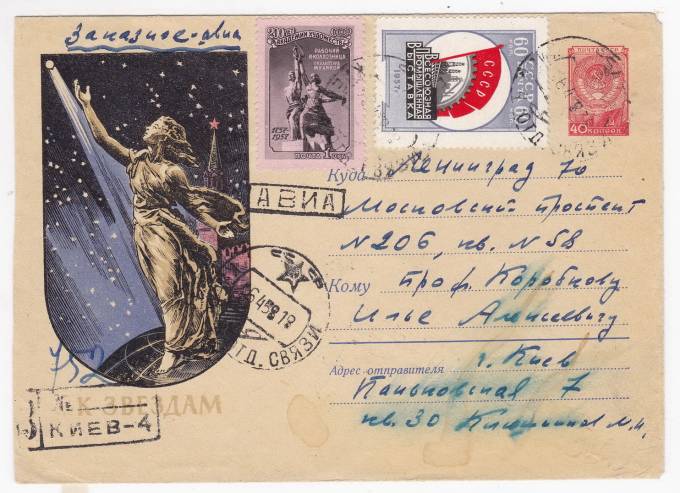 Заказное-авиа
200 ЛЕТ
АКАДЕМИИ ХУДОЖЕСТВ
РАБОЧИЙ
И КОЛХОЗНИЦА
1757-
1957
ПОЧТА 1 РУБ.
ВСЕСОЮЗНАЯ
ПРОМЫШЛЕННАЯ
ВЫСТАВКА
1957
СССР
60
ПОЧТА СССР
40 КОПЕЕК
Куда Ленинград 70
Московский проспект
N206, кв. N58
Кому проф. Коробкову
Илье Алексеевичу
Адрес отправителя г. Киев
Паньковская 7
кв. 30
АВИА
6458 18
ОТД. СВЯЗИ
К ЗВЕЗДАМ
№
КИЕВ-4